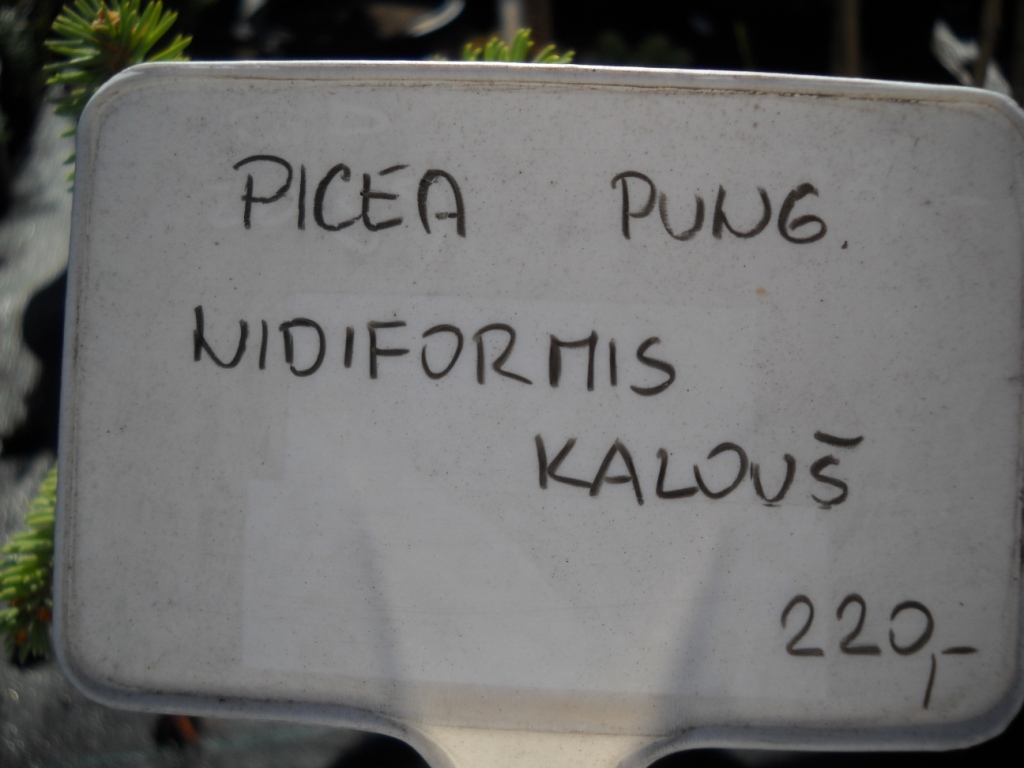 PICEA PUNG.
NIDIFORMIS
KALOUŠ
220,-